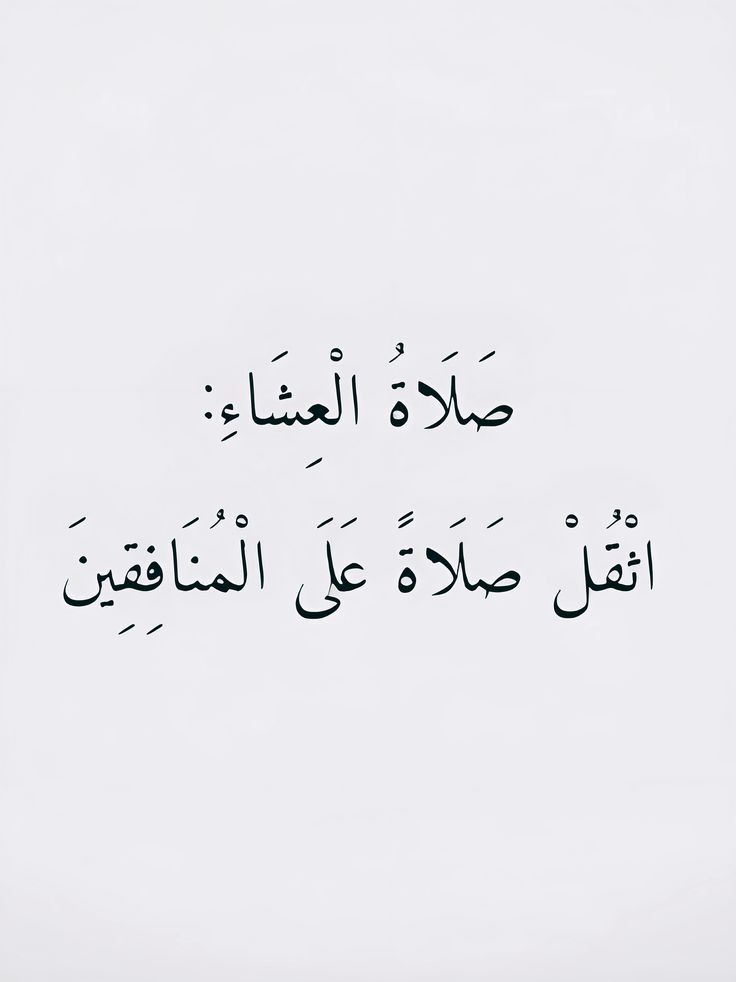 صَلَاةُ الْعِشَاءِ:
اثْقُلْ صَلَاةً عَلَى الْمُنَافِقِينَ